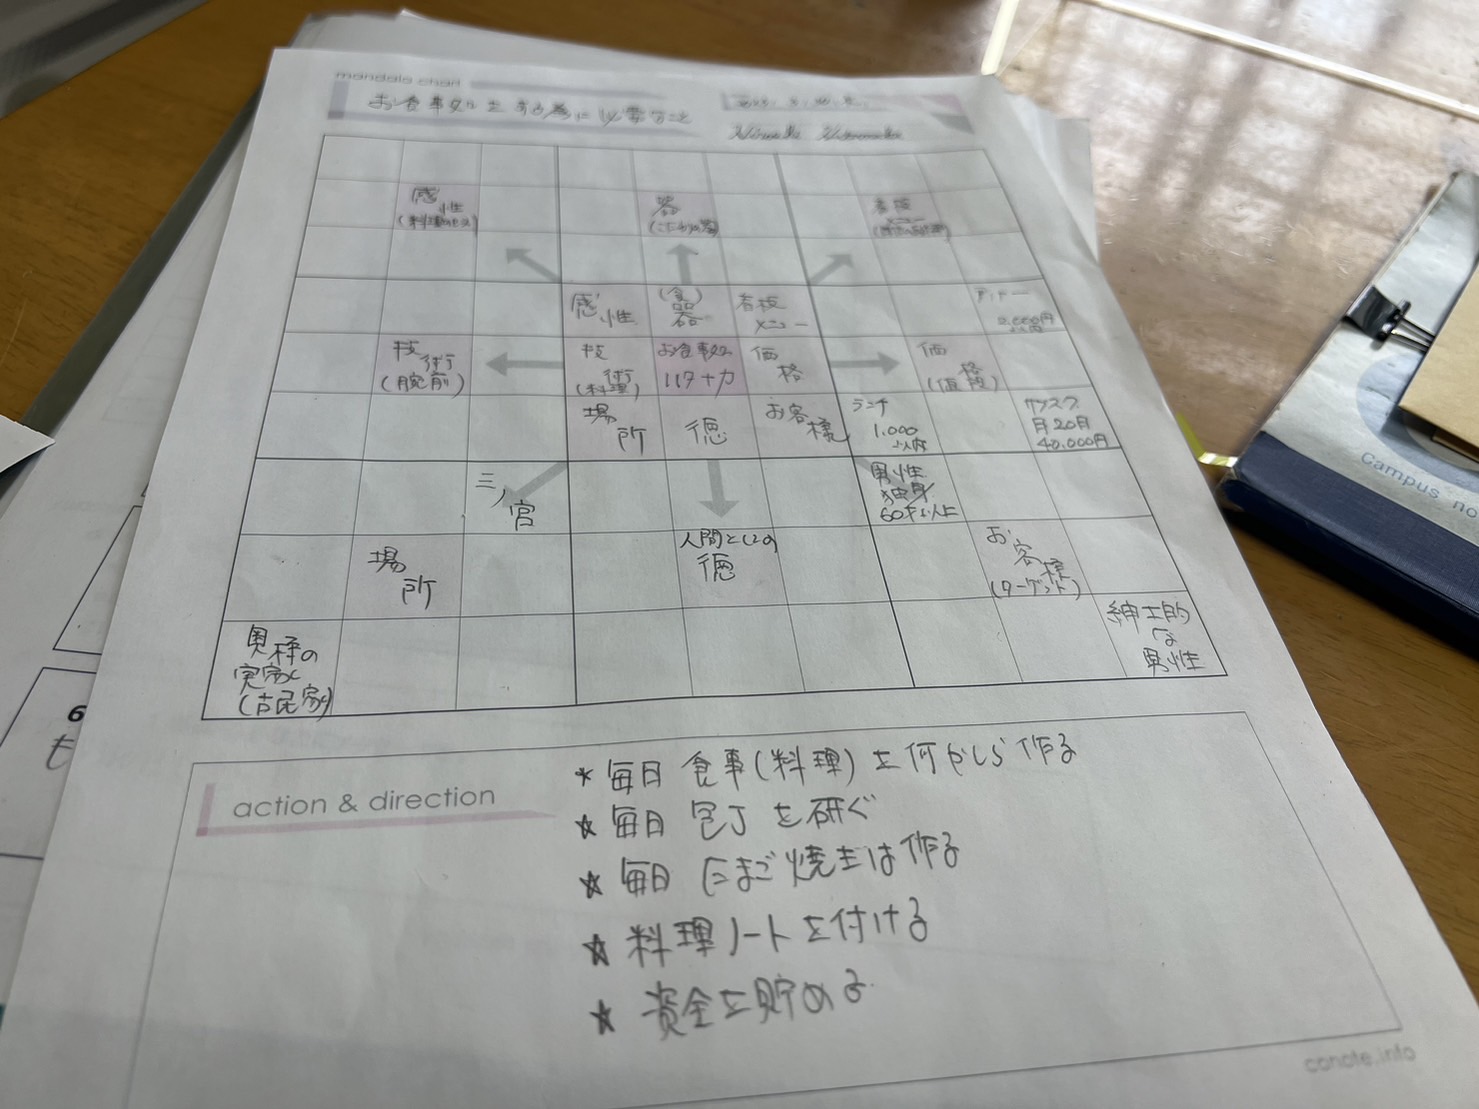 mandala chart
お食事処をする為に必要なこと
感性
(料理のセンス)
器
(こだわりの器)
看板
メニュー
感性
(食)
器
看板
メニュー
ディナー
2,000円
以内
技術
(腕前)
技術
(料理)
お食事処
価格
価格
(値段)
場所
徳
お客様
ランチ
1,000
以内
サブスク
月20日
40,000円
三ノ宮
男性
独身
60才以上
場所
人間としての
徳
お客様
(ターゲット)
実家
(古民家)
紳士的
な
男性
action & direction
★毎日 食事(料理)を何かしら作る
★毎日 包丁を研ぐ
★毎日 たまご焼きは作る
★料理ノートを付ける
★資金を貯める
conote.info
Campus no
6
も